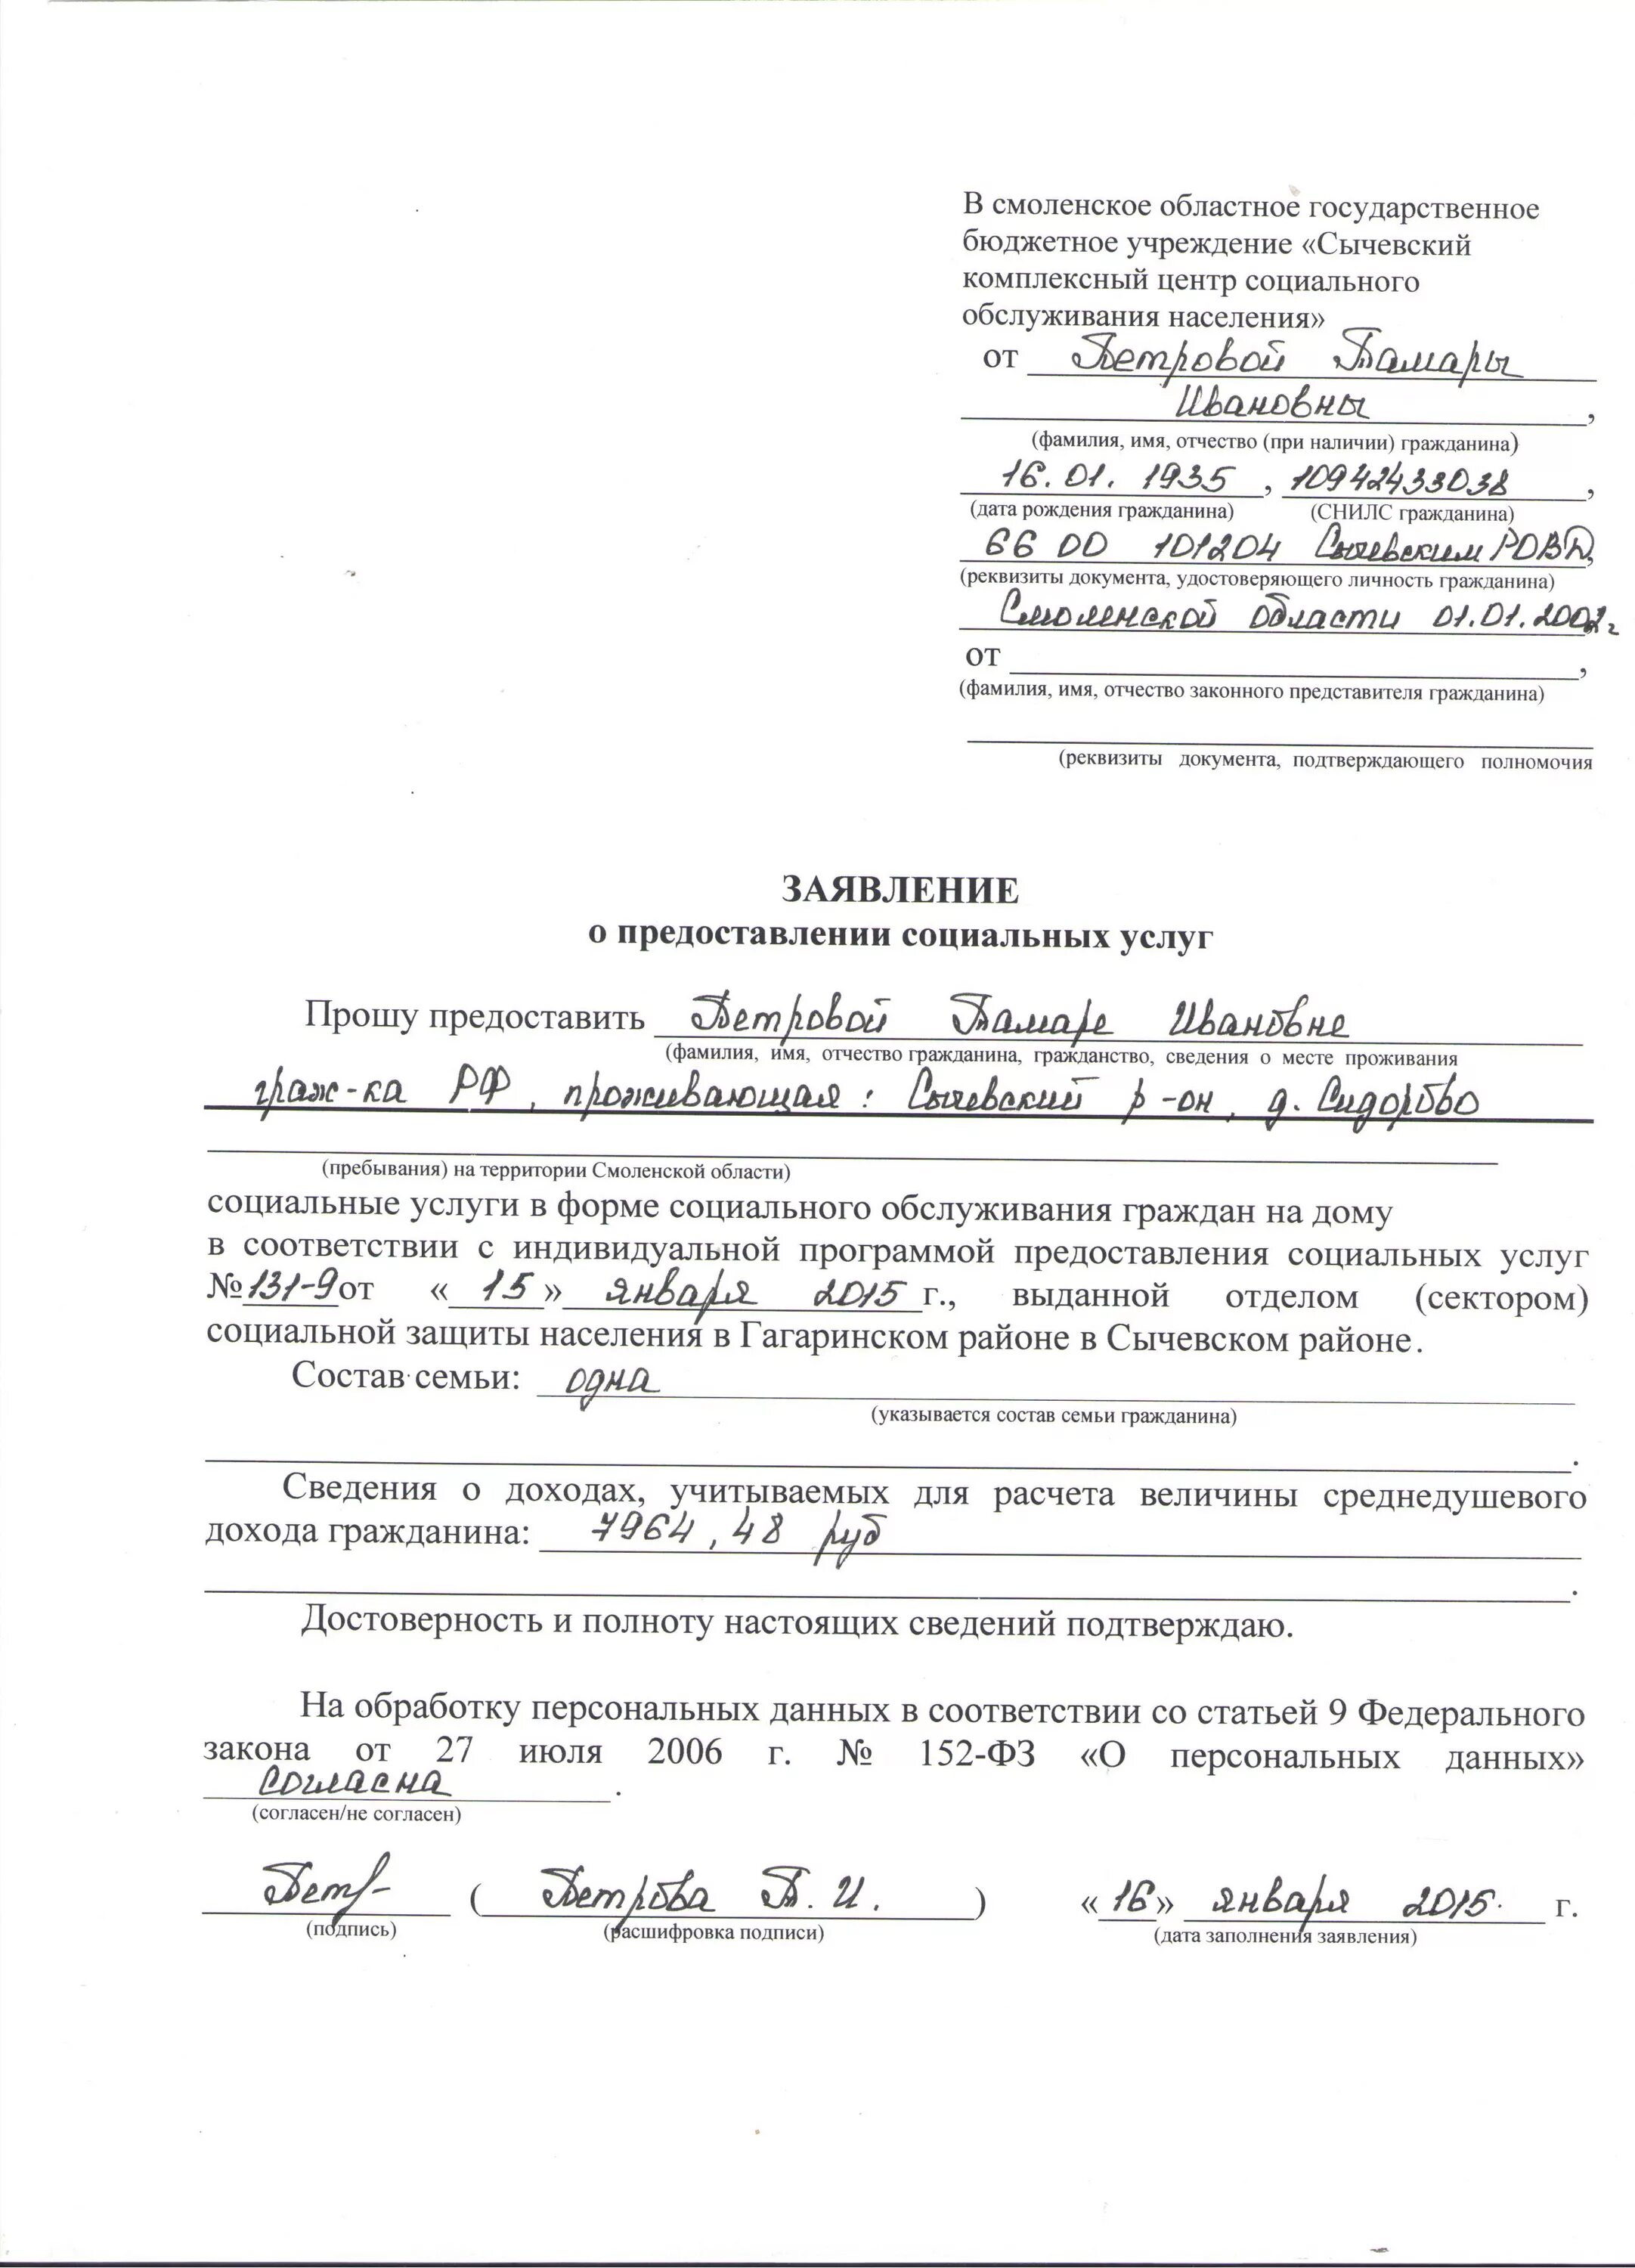 В смоленское областное государственное
бюджетное учреждение «Сычевский
комплексный центр социального
обслуживания населения»
от Петровой Тамары
Ивановны,
(фамилия, имя, отчество (при наличии) гражданина)
16.01. 1935, 10942433038,
(дата рождения гражданина) (СНИЛС гражданина)
66 00 101204 Сычевским РОВД,
(реквизиты документа, удостоверяющего личность гражданина)
Смоленской области 01.01.2002г
от ,
(фамилия, имя, отчество законного представителя гражданина)
(реквизиты документа, подтверждающего полномочия
ЗАЯВЛЕНИЕ
о предоставлении социальных услуг
Прошу предоставить Петровой Тамаре Ивановне
(фамилия, имя, отчество гражданина, гражданство, сведения о месте проживания
граж-ка РФ, проживающая: Сычевский р-он, д. Сидорово
(пребывания) на территории Смоленской области)
социальные услуги в форме социального обслуживания граждан на дому
в соответствии с индивидуальной программой предоставления социальных услуг
№ 131-9 от « 15 » января 2015 г., выданной отделом (сектором)
социальной защиты населения в Гагаринском районе в Сычевском районе.
Состав семьи: одна
(указывается состав семьи гражданина)
.
Сведения о доходах, учитываемых для расчета величины среднедушевого
дохода гражданина: 7964,48 руб
.
Достоверность и полноту настоящих сведений подтверждаю.
На обработку персональных данных в соответствии со статьей 9 Федерального
закона от 27 июля 2006 г. № 152-ФЗ «О персональных данных»
Согласна.
(согласен/не согласен)
Петр- ( Петрова Т. И. ) « 16 » января 2015. г.
(подпись) (расшифровка подписи) (дата заполнения заявления)